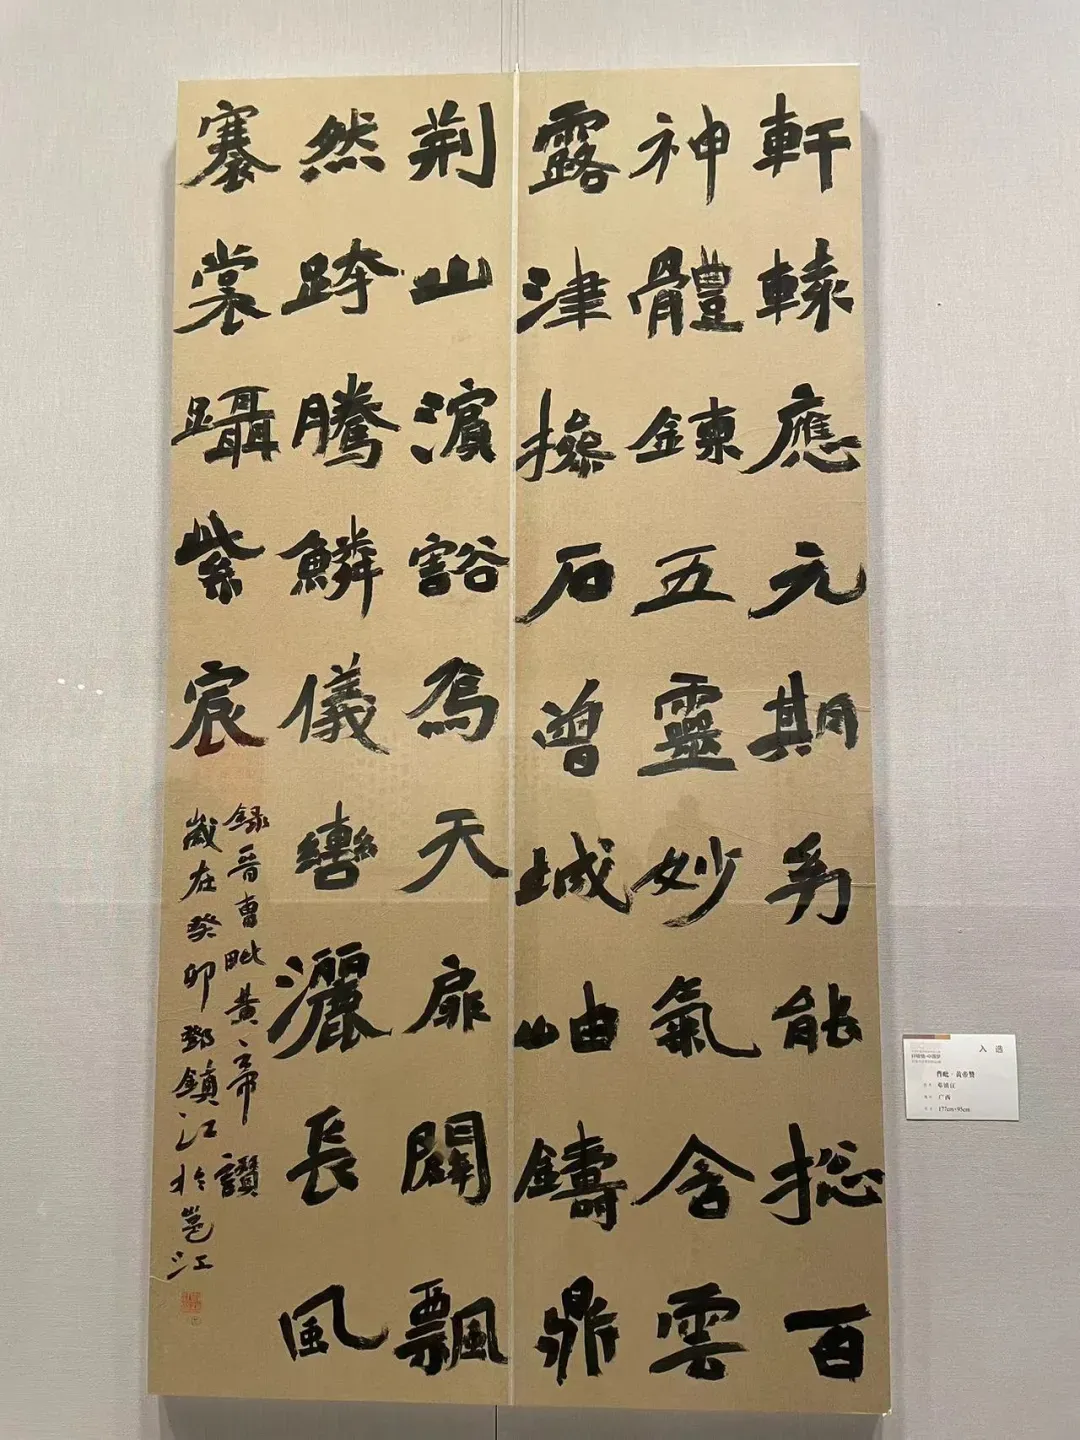 軒轅應元期幼能揔百
神體鍊五靈妙氣含雲
露津摻石曾城岫鑄鼎
荆山濵豁焉天扉闢飄
然跨騰鱗儀轡灑長風
褰裳躡紫宸
録晋曹毗黄帝讚
歲在癸卯鄧鎮江於邕江
入选
曹毗·黄帝赞
邓镇江
广西
177cm×95cm